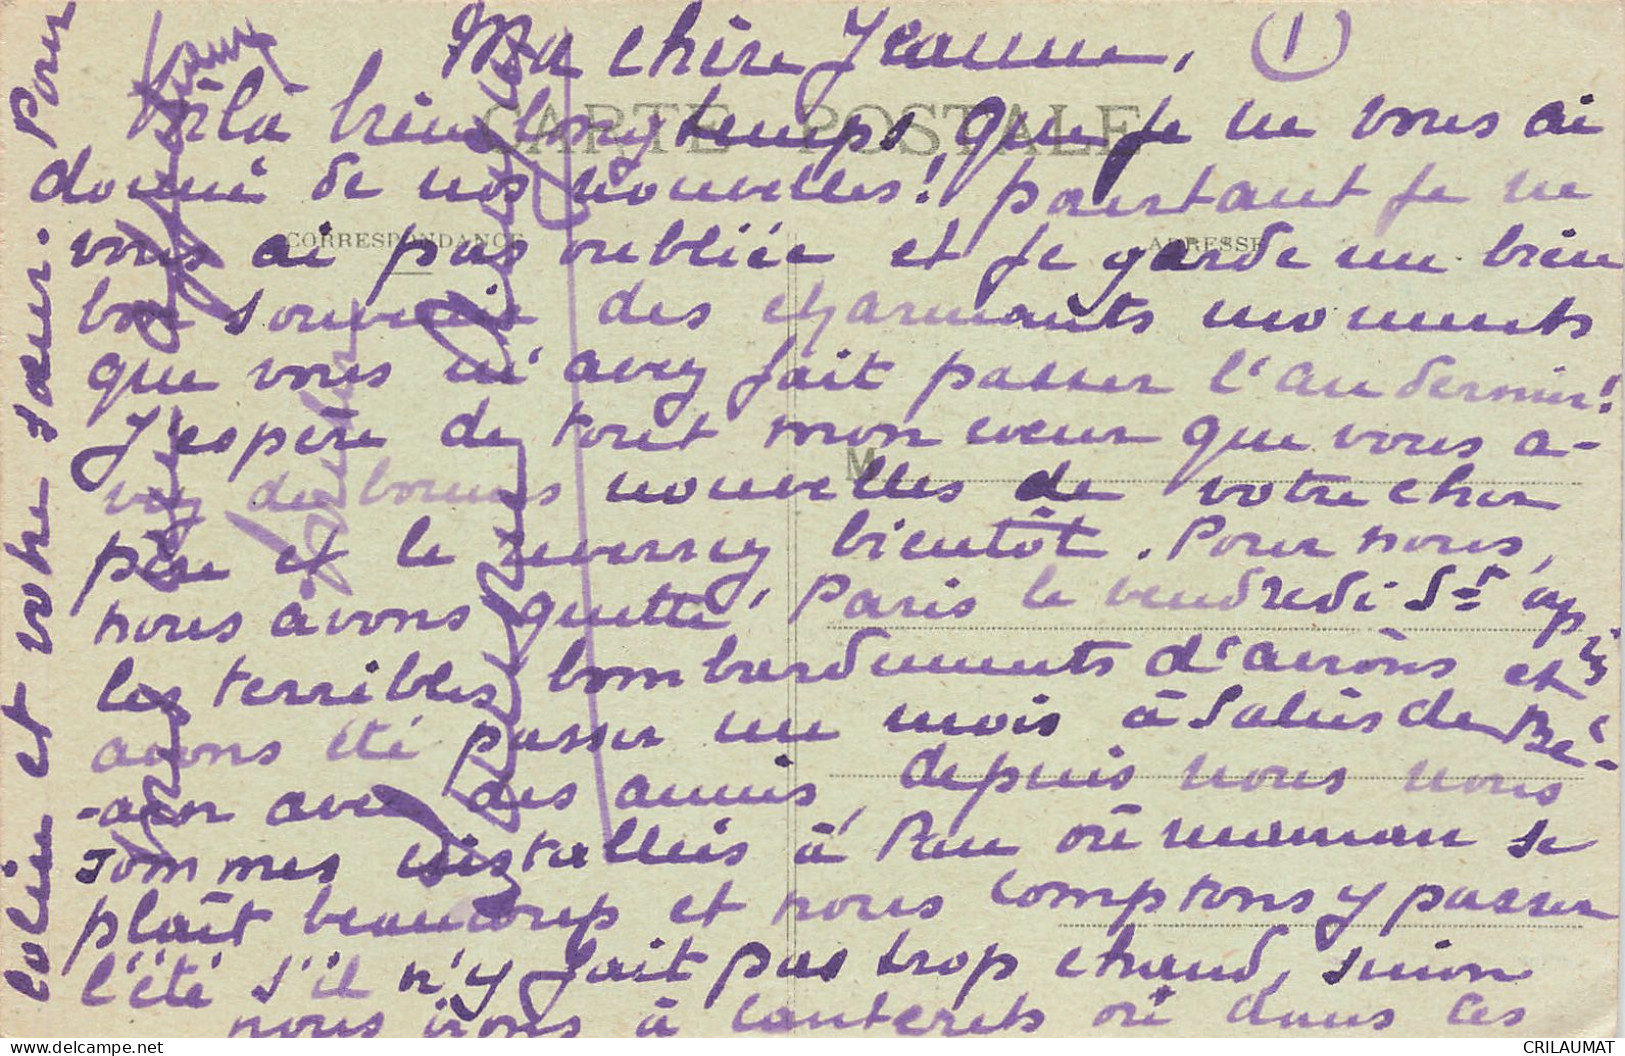 Ma chère Jeanne, (1)
CARTE POSTALE
Voilà bien longtemps que je ne vous ai
donné de nos nouvelles! pourtant je ne
CORRESPONDANCE
ADRESSE
vous ai pas oubliée et je garde un bien
bon souvenir des charmants moments
que vous m'avez fait passer l'an dernier!
J'espère de tout mon cœur que vous a-
M
vez de bonnes nouvelles de votre cher
père et le reverrez bientôt. Pour nous,
nous avons quitté Paris le vendredi St après
les terribles bombardements d'avions et
avons été passer un mois à Salies de Bé-
-arn avec des amis, depuis nous nous
sommes installées à Pau où maman se
plaît beaucoup et nous comptons y passer
l'été s'il n'y fait pas trop chaud, sinon
nous irons à Cauterets où dans ces
et votre sœur. Pour
CRILAUMAT